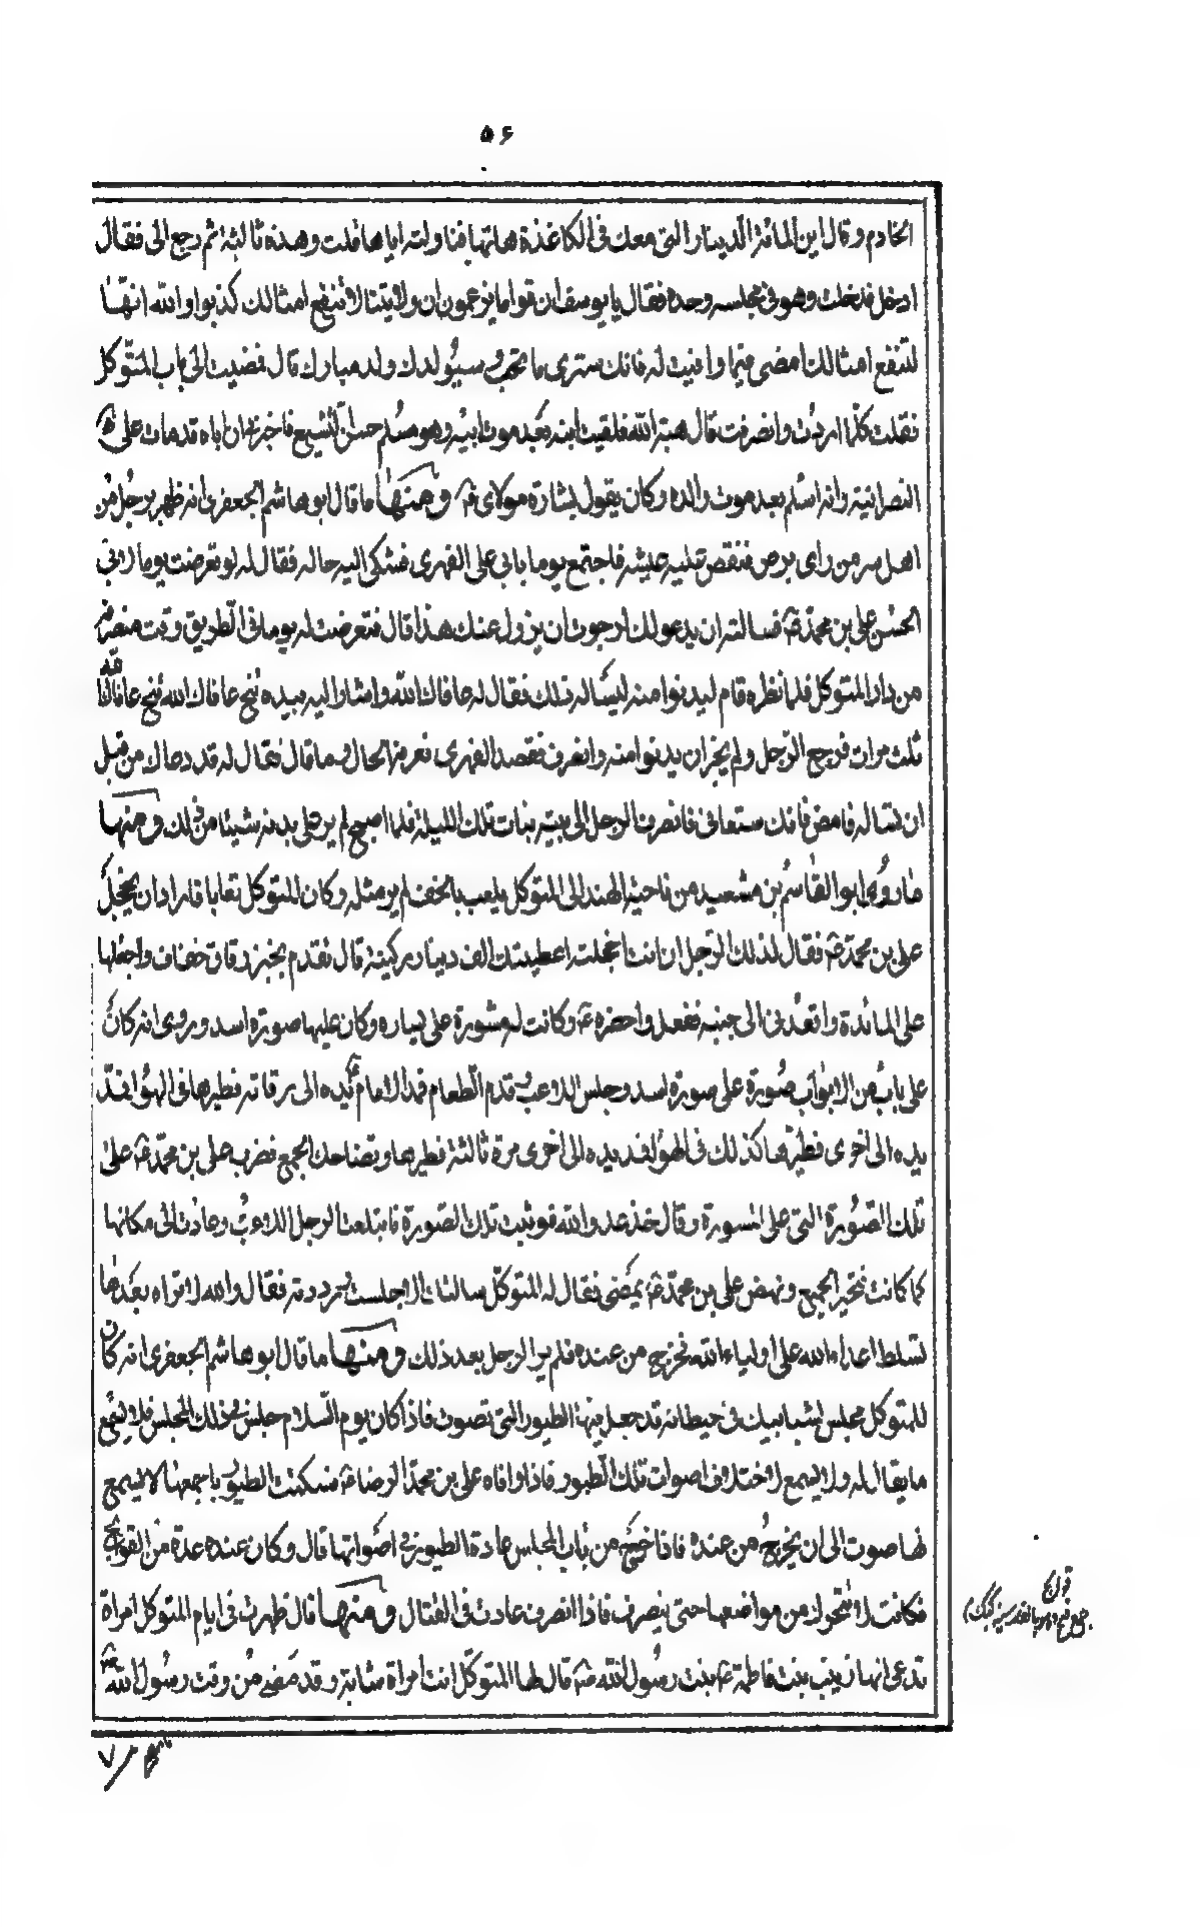 ۵۶
الخادم وقال اين المائة الدينار التى معك فى الكاغذة هاتها فناولته اياها قلت وهذه ثالثة ثم رجع الى فقال
ادخل فدخلت وهو فى مجلسه وحده فقال يا يوسف ان قوما يزعمون ان ولايتنا لا تنفع امثالك كذبوا والله انها
لتنفع امثالك امض فيما وافيت له فانك سترى ما تحب وسيولد لك ولد مبارك قال فمضيت الى باب المتوكل
فقلت كلما اردت وانصرفت قال هبة الله فلقيت ابنه بعد موت ابيه وهو مسلم حسن التشيع فاخبرنى ان اباه قد مات على
النصرانية وانه اسلم بعد موت والده وكان يقول بشارة مولاى ومنها ما قال ابو هاشم الجعفرى انه ظهر برجل من
اهل سر من راى برص فتنقص عليه عيشه فاجتمع يوما بابى على الفهرى فشكى اليه حاله فقال له لو تعرضت يوما لابى
الحسن على بن محمد ع فسالته ان يدعو لك لرجوت ان يزول عنك هذا قال فتعرضت له يوما فى الطريق وقت منصرفه
من دار المتوكل فلما نظره قام ليدنوا منه ليساله ذلك فقال له عافاك الله واشار اليه بيده تنح عافاك الله تنح عافاك الله
ثلث مرات فرجع الرجل ولم يجز ان يدنوا منه وانصرف فقصد الفهرى فعرفه الحال وما قال فقال له قد دعا لك من قبل
ان تساله فامض فانك ستعافى فانصرف الرجل الى بيته فبات تلك الليلة فلما اصبح لم ير على بدنه شيئا من ذلك ومنها
ما روى ابو القاسم بن مشعبد من ناحية الهند الى المتوكل يلعب بالخفة لم ير مثله وكان المتوكل لعابا فاراد ان يخجل
على بن محمد ع فقال لذلك الرجل ان انت اخجلته اعطيتك الف دينار ركنية قال تقدم بخبز رقاق خفاف واجعلها
على المائدة واقعدنى الى جنبه ففعل واحضره ع وكانت له مسورة على يساره وكان عليها صورة اسد وروى انه كان
على باب من الابواب صورة على صورة اسد وجلس اللاعب وقدم الطعام فمد الامام ع يده الى رقاقة فطيرها فى الهوا فمد
يده الى اخرى فطيرها كذلك فى الهوا فمد يده الى اخرى مرة ثالثة فطيرها وتضاحك الجمع فضرب على بن محمد ع على
تلك الصورة التى على المسورة وقال خذ عدو الله فوثبت تلك الصورة فابتلعت الرجل اللاعب وعادت الى مكانها
كما كانت فتحير الجميع ونهض على بن محمد ع يمضى فقال له المتوكل سالتك الا جلست ورددته فقال والله لا تراه بعدها
تسلط اعداء الله على اولياء الله فخرج من عنده فلم ير الرجل بعد ذلك ومنها ما قال ابو هاشم الجعفرى انه كان
للمتوكل مجلس بشبابيك فى حيطانه قد جعل فيها الطيور التى تصوت فاذا كان يوم السلام جلس فى ذلك المجلس فلا يسمع
ما يقال له ولا يسمع لاختلاف اصوات تلك الطيور فاذا وافاه على بن محمد الرضا ع سكتت الطيور باجمعها لا يسمع
لها صوت الى ان يخرج من عنده فاذا خرج من باب المجلس عادة الطيور فى اصواتها قال وكان عنده عدة من القوابج
فكانت لا تتحول من مواضعها حتى ينصرف فاذا انصرف عادت فى القتال ومنها قال ظهرت فى ايام المتوكل امراة
تدعى انها زينب بنت فاطمة ع بنت رسول الله ص قال لها المتوكل انت امراة شابة وقد مضى من وقت رسول الله